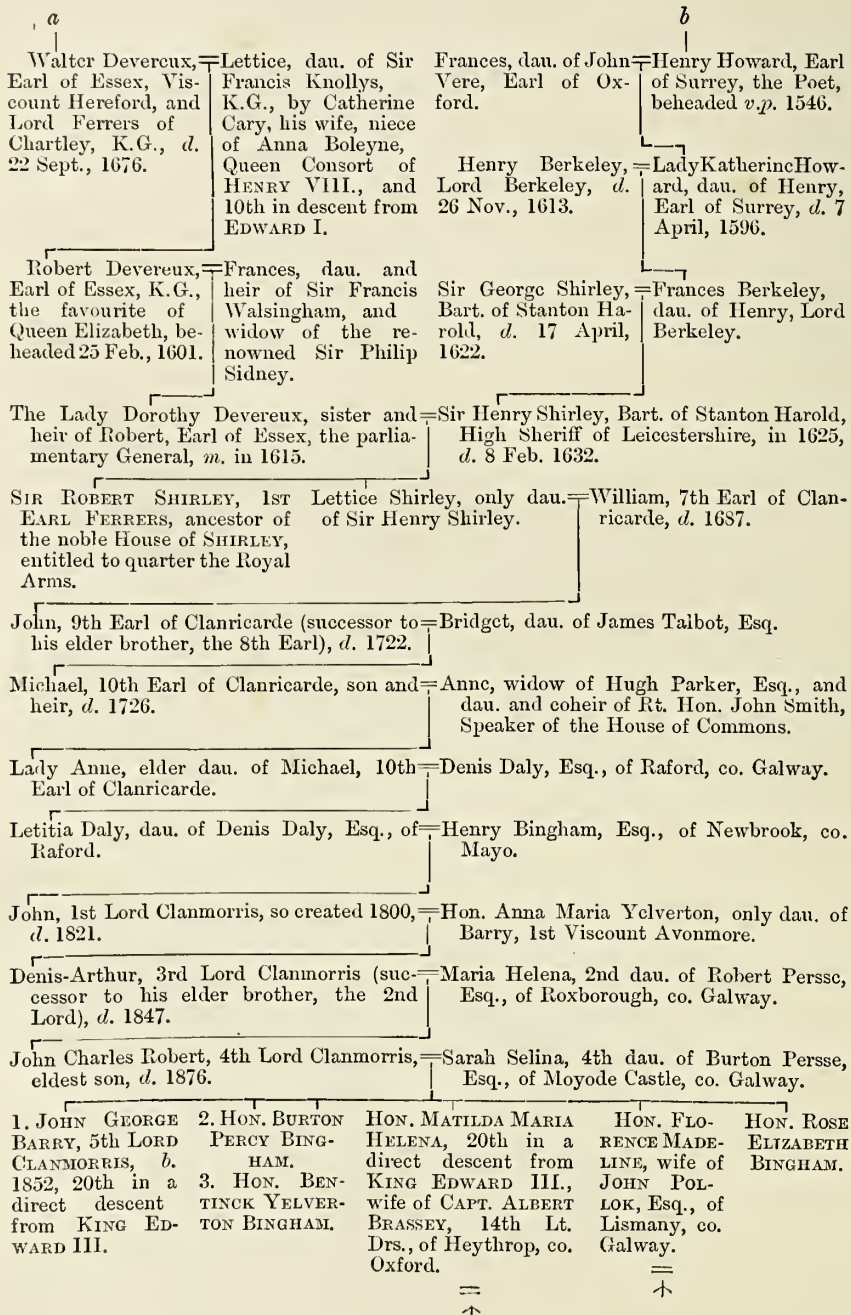 a
b
Walter Devereux,
Earl of Essex, Vis-
count Hereford, and
Lord Ferrers of
Chartley, K.G., d.
22 Sept., 1676.
=Lettice, dau. of Sir
Francis Knollys,
K.G., by Catherine
Cary, his wife, niece
of Anna Boleyne,
Queen Consort of
HENRY VIII., and
10th in descent from
EDWARD I.
Frances, dau. of John
Vere, Earl of Ox-
ford.
=Henry Howard, Earl
of Surrey, the Poet,
beheaded v.p. 1546.
Henry Berkeley,
Lord Berkeley, d.
26 Nov., 1613.
=Lady Katherine How-
ard, dau. of Henry,
Earl of Surrey, d. 7
April, 1596.
Robert Devereux,
Earl of Essex, K.G.,
the favourite of
Queen Elizabeth, be-
headed 25 Feb., 1601.
=Frances, dau. and
heir of Sir Francis
Walsingham, and
widow of the re-
nowned Sir Philip
Sidney.
Sir George Shirley,
Bart. of Stanton Ha-
rold, d. 17 April,
1622.
=Frances Berkeley,
dau. of Henry, Lord
Berkeley.
The Lady Dorothy Devereux, sister and
heir of Robert, Earl of Essex, the parlia-
mentary General, m. in 1615.
=Sir Henry Shirley, Bart. of Stanton Harold,
High Sheriff of Leicestershire, in 1625,
d. 8 Feb. 1632.
SIR ROBERT SHIRLEY, 1ST
EARL FERRERS, ancestor of
the noble House of SHIRLEY,
entitled to quarter the Royal
Arms.
Lettice Shirley, only dau.
of Sir Henry Shirley.
=William, 7th Earl of Clan-
ricarde, d. 1687.
John, 9th Earl of Clanricarde (successor to
his elder brother, the 8th Earl), d. 1722.
=Bridget, dau. of James Talbot, Esq.
Michael, 10th Earl of Clanricarde, son and
heir, d. 1726.
=Anne, widow of Hugh Parker, Esq., and
dau. and coheir of Rt. Hon. John Smith,
Speaker of the House of Commons.
Lady Anne, elder dau. of Michael, 10th
Earl of Clanricarde.
=Denis Daly, Esq., of Raford, co. Galway.
Letitia Daly, dau. of Denis Daly, Esq., of
Raford.
=Henry Bingham, Esq., of Newbrook, co.
Mayo.
John, 1st Lord Clanmorris, so created 1800,
d. 1821.
=Hon. Anna Maria Yelverton, only dau. of
Barry, 1st Viscount Avonmore.
Denis-Arthur, 3rd Lord Clanmorris (suc-
cessor to his elder brother, the 2nd
Lord), d. 1847.
=Maria Helena, 2nd dau. of Robert Persse,
Esq., of Roxborough, co. Galway.
John Charles Robert, 4th Lord Clanmorris,
eldest son, d. 1876.
=Sarah Selina, 4th dau. of Burton Persse,
Esq., of Moyode Castle, co. Galway.
1. JOHN GEORGE
BARRY, 5th LORD
CLANMORRIS, b.
1852, 20th in a
direct descent
from KING ED-
WARD III.
2. HON. BURTON
PERCY BING-
HAM.
3. HON. BEN-
TINCK YELVER-
TON BINGHAM.
HON. MATILDA MARIA
HELENA, 20th in a
direct descent from
KING EDWARD III.,
wife of CAPT. ALBERT
BRASSEY, 14th Lt.
Drs., of Heythrop, co.
Oxford.
=
HON. FLO-
RENCE MADE-
LINE, wife of
JOHN POL-
LOK, Esq., of
Lismany, co.
Galway.
=
HON. ROSE
ELIZABETH
BINGHAM.